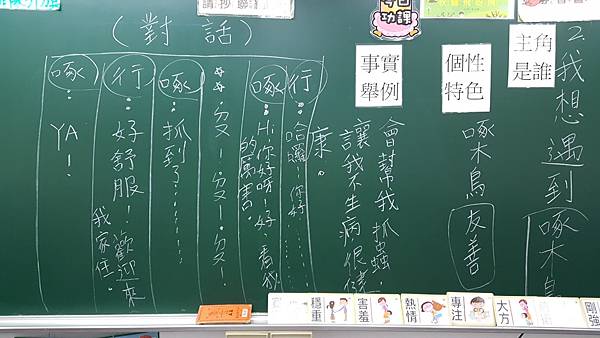 請抄聯
功課
主角
是誰
2.我想遇到啄木鳥
個性
特色
啄木鳥 友善
事實
舉例
會幫我抓蟲,
讓我不生病很健
康。
(對話)
行:哈囉!你好......
啄:Hi你好呀!好,看我
的厲害。
啄:抓到了!......
行:好舒服!歡迎來
我家住。
啄:YA!
穩重
害羞
熱情
專注
大方
剛強